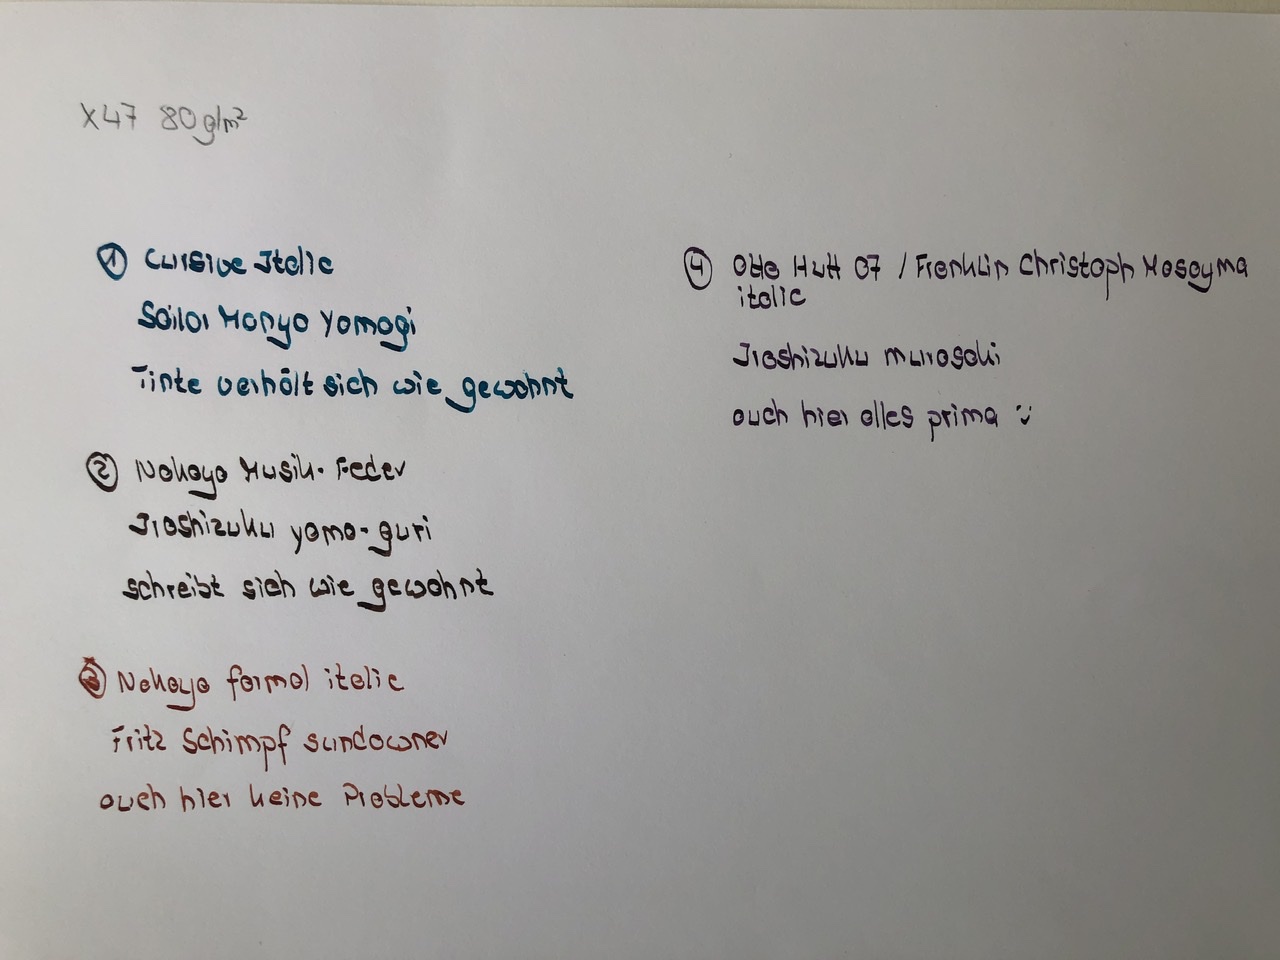 X47 80g/m²
① Cursive Italic
Sailor Manyo Yomogi
Tinte verhält sich wie gewohnt
② Nakaya Musik-Feder
Iroshizuku yama-guri
schreibt sich wie gewohnt
③ Nakaya formal italic
Fritz Schimpf sundowner
auch hier keine Probleme
④ Otto Hutt 07 / Franklin Christoph Masayma
italic
Iroshizuku murasaki
auch hier alles prima :)